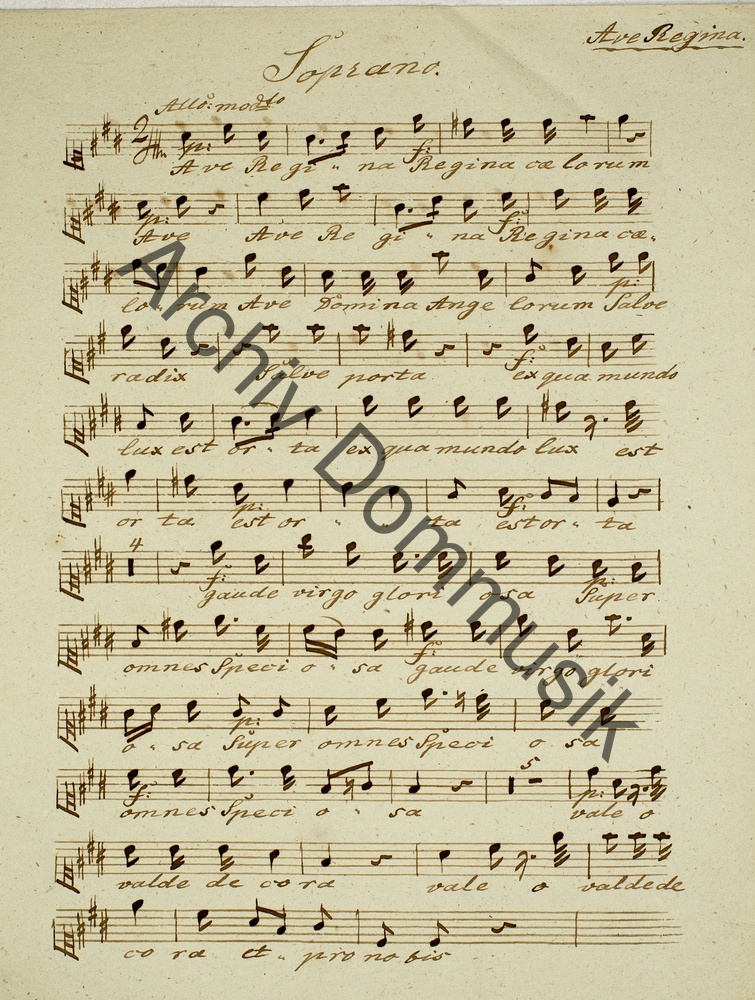 Ave Regina.
Soprano.
All⁰: mod:to
p: f:
Ave Regi " na Regina cœ lorum
p: f:
Ave Ave Re gi " na Regina cœ-
p:
lo " rum Ave Domina Ange lorum Salve
f:
radix Salve porta ex qua mundo
lux est or " ta ex qua mundo lux est
p: f:
or ta est or " " ta est or " ta
4
f: p:
gaude virgo glori osa Super
f:
omnes Speci o " sa gaude virgo glori
p:
o " sa Super omnes Speci o sa
5
f: p:
omnes Speci o " sa vale o
valde de co ra vale o valde de
co ra et " pro no bis
Archiv Dommusik